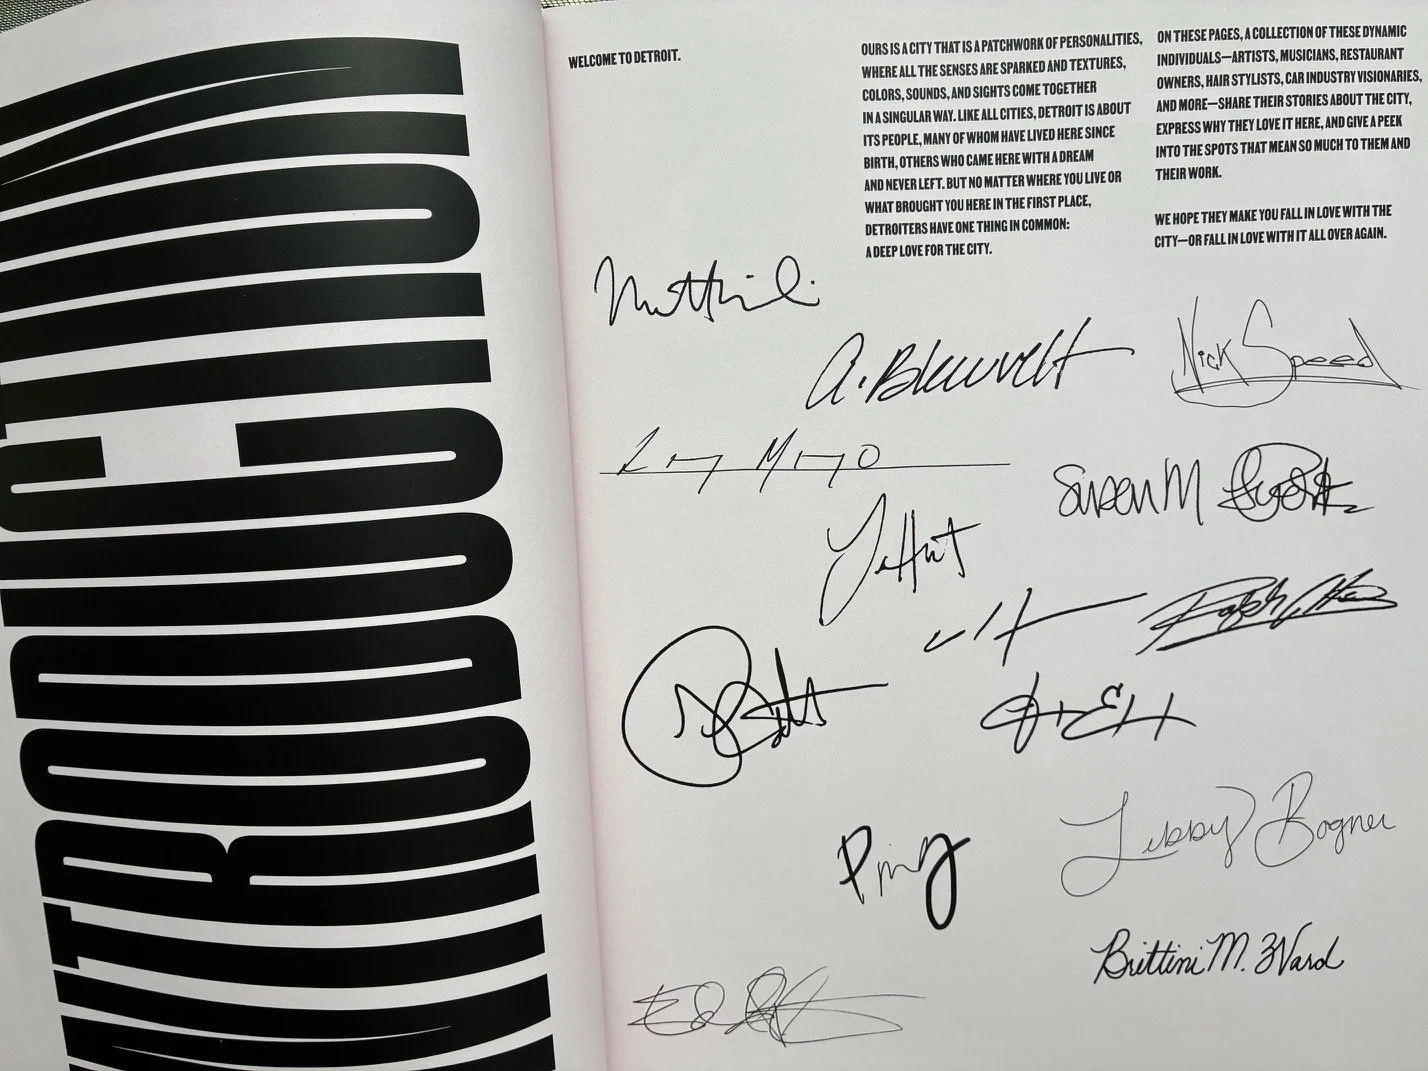 INTRODUCTION
WELCOME TO DETROIT.
OURS IS A CITY THAT IS A PATCHWORK OF PERSONALITIES,
WHERE ALL THE SENSES ARE SPARKED AND TEXTURES,
COLORS, SOUNDS, AND SIGHTS COME TOGETHER
IN A SINGULAR WAY. LIKE ALL CITIES, DETROIT IS ABOUT
ITS PEOPLE, MANY OF WHOM HAVE LIVED HERE SINCE
BIRTH, OTHERS WHO CAME HERE WITH A DREAM
AND NEVER LEFT. BUT NO MATTER WHERE YOU LIVE OR
WHAT BROUGHT YOU HERE IN THE FIRST PLACE,
DETROITERS HAVE ONE THING IN COMMON:
A DEEP LOVE FOR THE CITY.
ON THESE PAGES, A COLLECTION OF THESE DYNAMIC
INDIVIDUALS—ARTISTS, MUSICIANS, RESTAURANT
OWNERS, HAIR STYLISTS, CAR INDUSTRY VISIONARIES,
AND MORE—SHARE THEIR STORIES ABOUT THE CITY,
EXPRESS WHY THEY LOVE IT HERE, AND GIVE A PEEK
INTO THE SPOTS THAT MEAN SO MUCH TO THEM AND
THEIR WORK.
WE HOPE THEY MAKE YOU FALL IN LOVE WITH THE
CITY—OR FALL IN LOVE WITH IT ALL OVER AGAIN.
A. Blauvelt
Nick Speed
Susan M
Ping
Libby Bogner
Brittini M. Ward